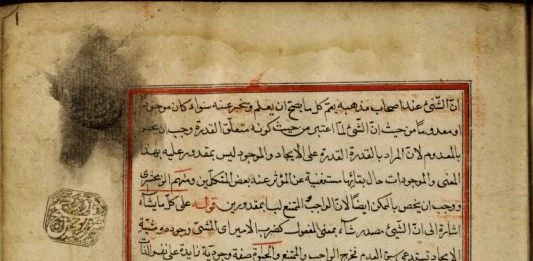 انّ الشّيئ عند اصحاب مذهبه يعمّ كل ما يصحّ ان يعلم ويخبر عنه سواء كان موجودا
او معدوما من حيث انّ الشّيئ لمّا اعتبر من حيث كونه متعلّق القدرة وجب ان
بالمعدوم لانّ المراد بالقدرة القدرة على الايجاد والموجود ليس بمقدور عليه بهذا
المعنى والموجودات حال بقائها مستغنية عن المؤثر عند بعض المتكلّمين ومنهم الزمخشرى
ووجب ان يختص بالممكن ايضا لانّ الواجب الممتنع ليسا بمقدورين قوله على كلّ ما يشاء
اشارة الى انّ الشّيئ مصدر شاء بمعنى المفعول كضرب الامير اى المشيئ وجوده
الايجاد يستدعى سبق العدم فخرج الواجب والممتنع صفة وجوديّة زايدة على نفس الذات